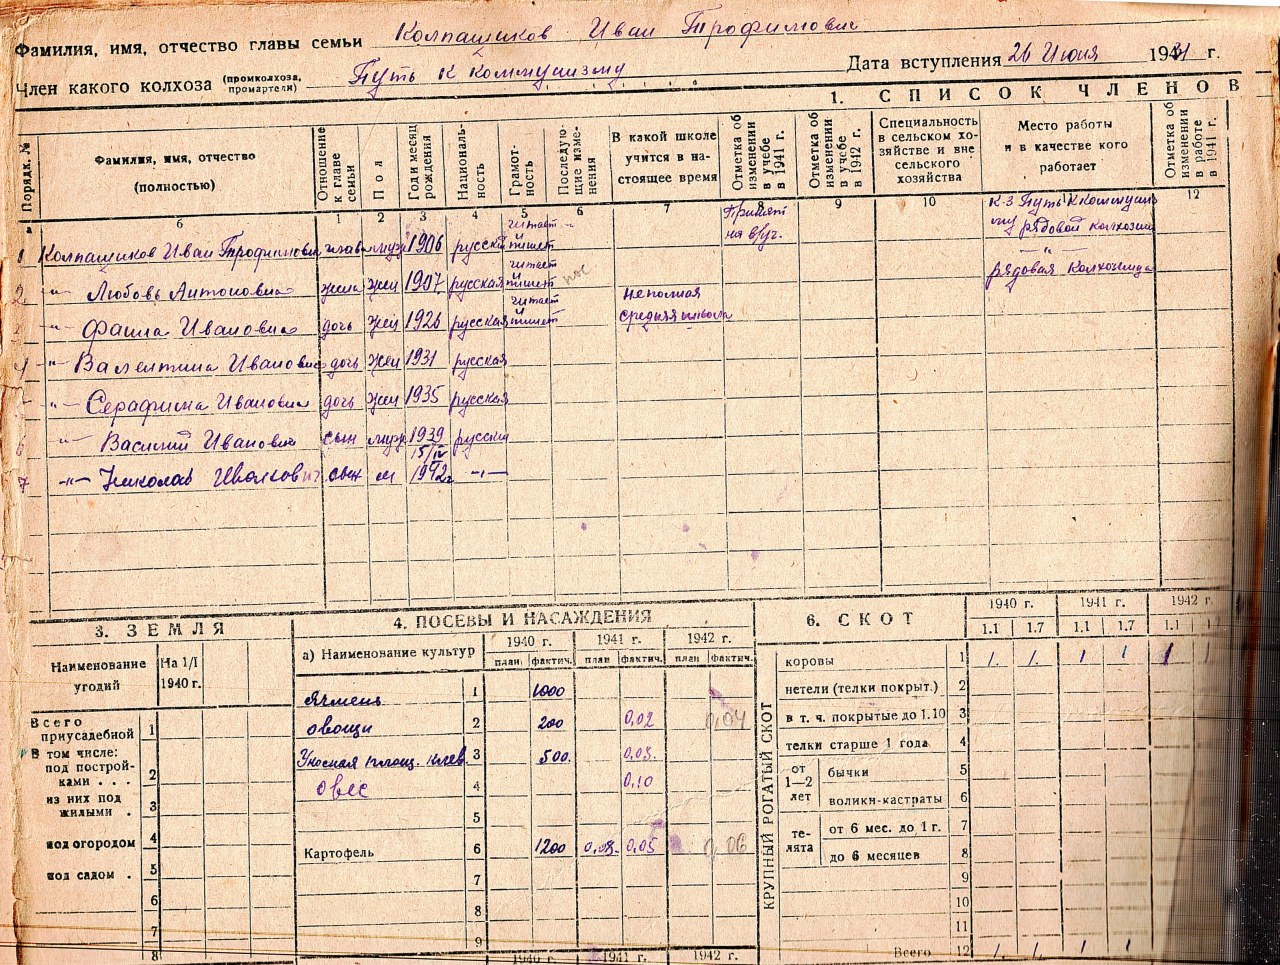 Фамилия, имя, отчество главы семьи Колпашиков Иван Трофимович
Член какого колхоза (промколхоза, промартели) Путь к коммунизму Дата вступления 26 Июня 1931 г.
1. СПИСОК ЧЛЕНОВ
Порядк. №
Фамилия, имя, отчество (полностью)
Отношение к главе семьи
Пол
Год и месяц рождения
Националь-ность
Грамот-ность
Последую-щие изме-нения
В какой школе учится в на-стоящее время
Отметка об изменении в учебе в 1941 г.
Отметка об изменении в учебе в 1942 г.
Специальность в сельском хо-зяйстве и вне сельского хозяйства
Место работы и в качестве кого работает
Отметка об изменении в работе в 1941 г.
б 1 2 3 4 5 6 7 8 9 10 11 12
1 Колпашиков Иван Трофимович глав муж 1906 русский читает пишет Принят на в/уч. к-з Путь к коммунизму рядовой колхозник
2 -"- Любовь Антоновна жена жен 1907 русская читает пишет -"- рядовая колхозница
3 -"- Фаина Ивановна дочь жен 1926 русская читает пишет неполная средняя школа
4 -"- Валентина Ивановна дочь жен 1931 русская
5 -"- Серафима Ивановна дочь жен 1935 русская
6 -"- Василий Иванович сын муж 1939 русский
7 -"- Николай Иванович сын м 15/IV 1942г -"-
3. ЗЕМЛЯ
Наименование угодий На 1/I 1940 г.
Всего приусадебной 1
В том числе: под построй-ками . . . 2
из них под жилыми . 3
под огородом 4
под садом . 5
6
7
8
4. ПОСЕВЫ И НАСАЖДЕНИЯ
а) Наименование культур 1940 г. 1941 г. 1942 г.
план фактич. план фактич. план фактич.
Ячмень 1 1000
овощи 2 200 0,02 0,04
Укосная площ. клев 3 500. 0,03.
Овес 4 0,10
5
Картофель 6 1200 0,08. 0,05 0,06
7
8
9
1940 г. 1941 г. 1942 г.
6. СКОТ
1940 г. 1941 г. 1942 г.
1.1 1.7 1.1 1.7 1.1
КРУПНЫЙ РОГАТЫЙ СКОТ
коровы 1 1. 1. 1 1 1 1
нетели (телки покрыт.) 2
в т. ч. покрытые до 1.10 3
телки старше 1 года 4
от 1—2 лет бычки 5
волики-кастраты 6
те-лята от 6 мес. до 1 г. 7
до 6 месяцев 8
9
10
11
Всего 12 1. 1. 1 1